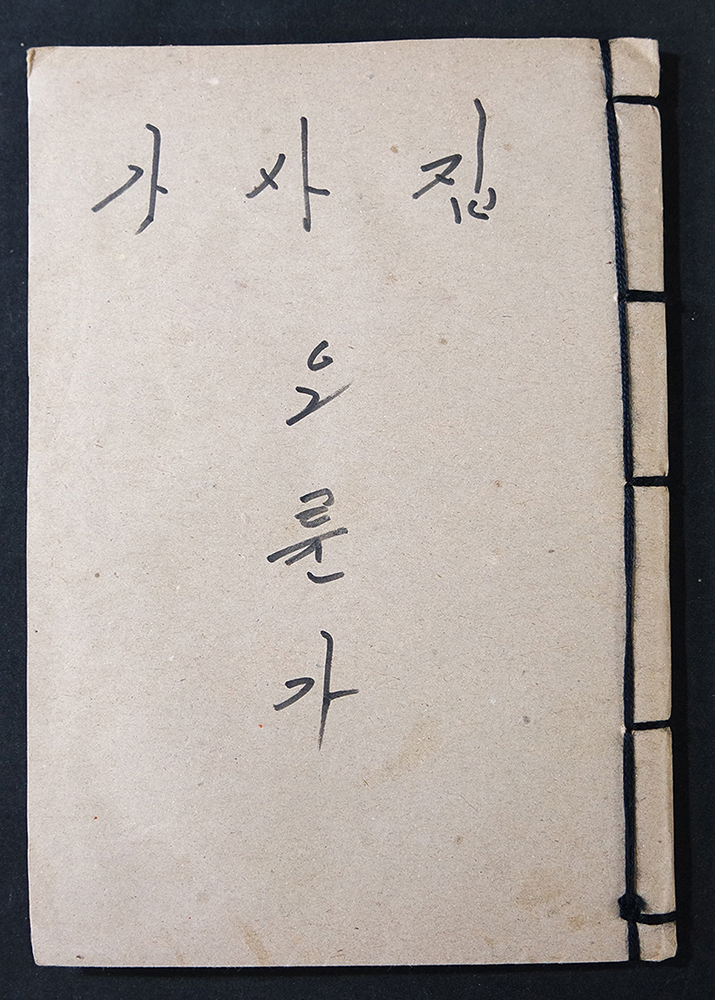 가사집
오륜가